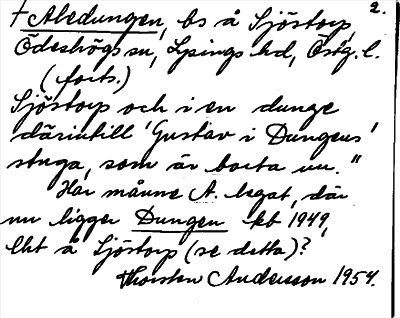 2.
† Aledungen, bs å Sjöstorp,
Ödeshögs sn, Lysings hd, Östg. l.
(forts.)
Sjöstorp och i en dunge
därintill 'Gustav i Dungens'
stuga, som är borta nu."
Har månne A. legat, där
nu ligger Dungen kb 1949,
lht å Sjöstorp (se detta)?
Thorsten Andersson 1954.